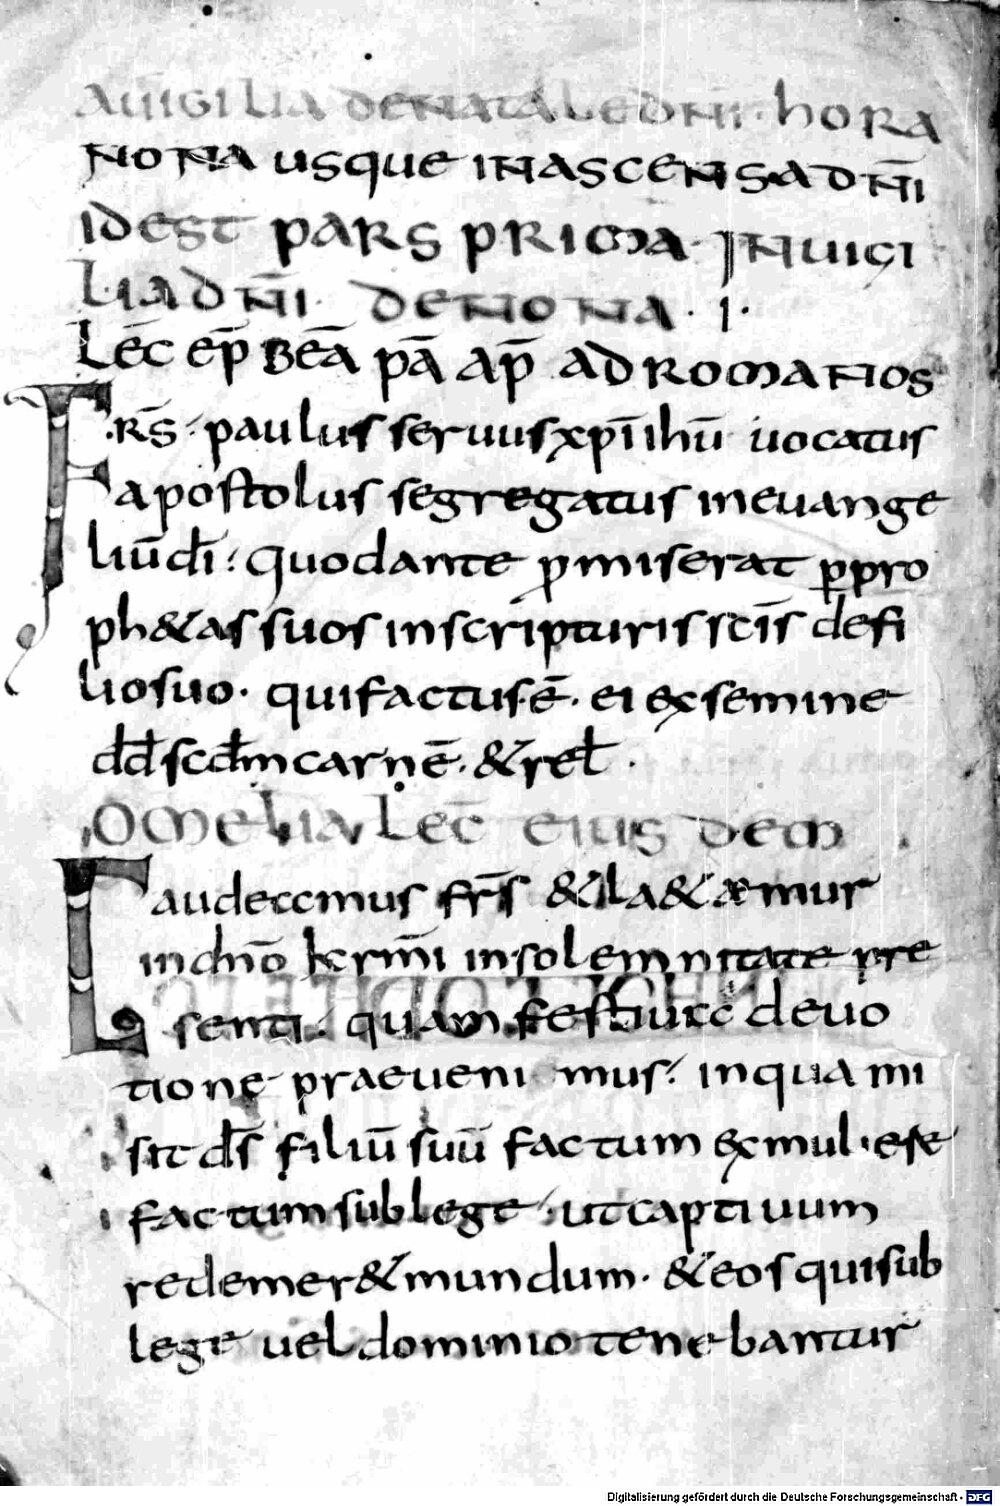 AUIGILIA DE NATALE DN̄I · HORA
NONA USQUE IN ASCENSA DN̄I
IDEST PARS PRIMA · IN UIGI
LIA DN̄I · DE NONA · I ·
LEC̄ EP̄ BEĀ PĀ AP̄ AD ROMANOS
FRS̄ · paulus seruus xp̄i ihū uocatus
apostolus segregatus in euange
liū dī : quod ante ꝓmiserat ꝑ pro
ph&as suos in scripturis sc̄is de fi
lio suo · qui factus ē · ei ex semine
dd̄ scd̄m carnē · & rel̄ ·
OMELIA LEC̄ EIUSDEM
Gaudeamus fr̄s & la&æmur
in dn̄o kr̄mi in solemnitate pre
senti : quam festiua deuo
tione praeuenimus : in qua mi
sit ds̄ filiū suū factum ex muliere
factum sub lege · ut captiuum
redemer& mundum · & eos qui sub
lege uel dominio tenebantur
Digitalisierung gefördert durch die Deutsche Forschungsgemeinschaft - DFG